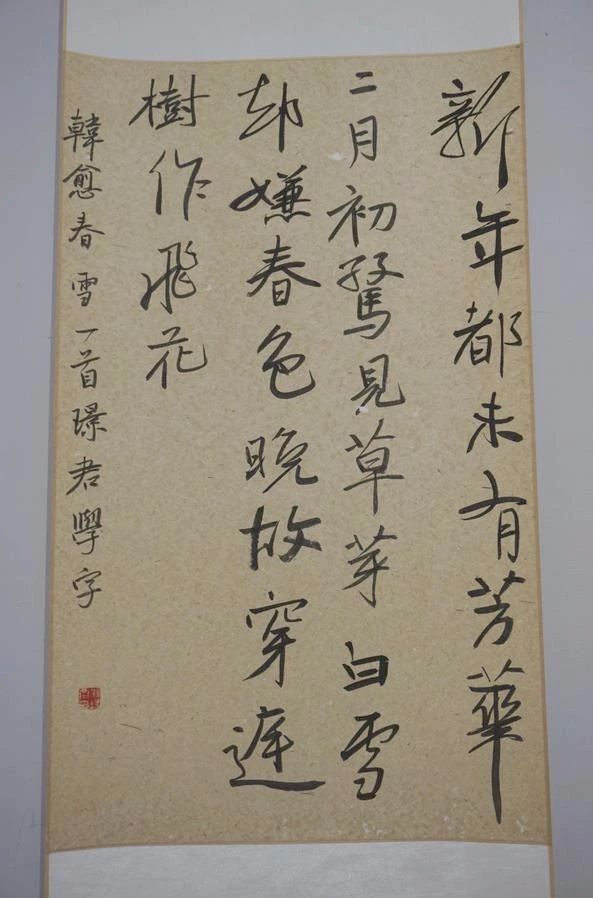 新年都未有芳華
二月初驚見草芽白雪
却嫌春色晚故穿庭
樹作飛花
韓愈春雪一首璟君學字